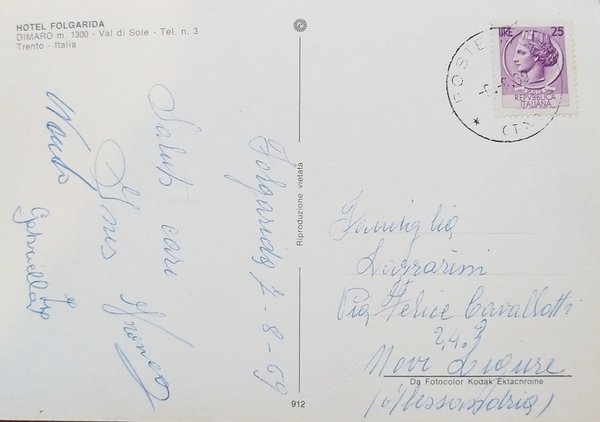 HOTEL FOLGARIDA
DIMARO m. 1300 - Val di Sole - Tel. n. 3
Trento - Italia
Folgarida 2-8-69
Saluti cari
Ines Franco
Wanda e
Gabriella
Riproduzione vietata
LIRE 25
POSTE
REPVBBLICA
ITALIANA
POSTE
(TN)
Famiglia
Lazzarini
Via Felice Cavallotti
Novi Ligure
(Alessandria)
Da Fotocolor Kodak Ektachrome
912